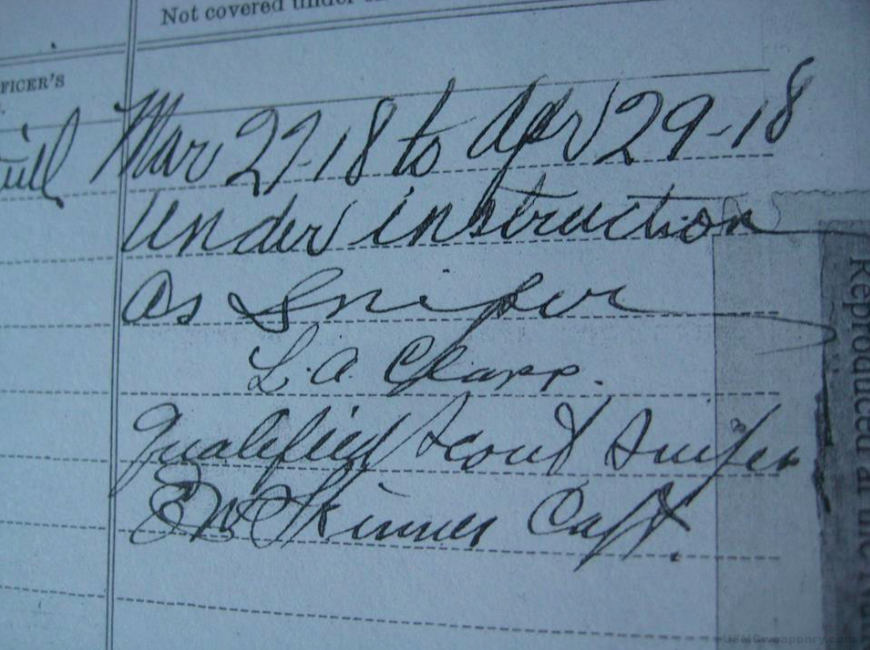 Not covered under
FICER'S
Mar 27-18 to Apr 29-18
Under instruction
as Sniper
L. A. Clapp.
Qualified Scout Sniper
EW Skinner Capt.
Reproduced at the